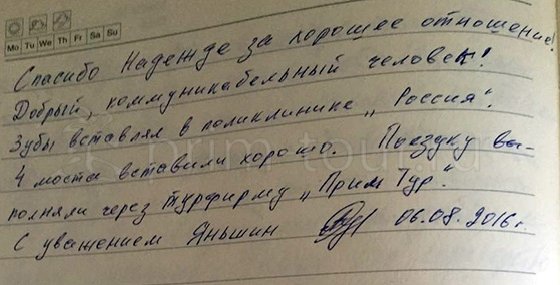 Mo Tu We Th Fr Sa Su
Спасибо Надежде за хорошее отношение!
Добрый, коммуникабельный человек!
Зубы вставлял в поликлинике „Россия".
4 моста вставили хорошо. Поездку вы-
полняли через турфирму „Прим Тур".
С уважением Яньшин 06.08.2016г.